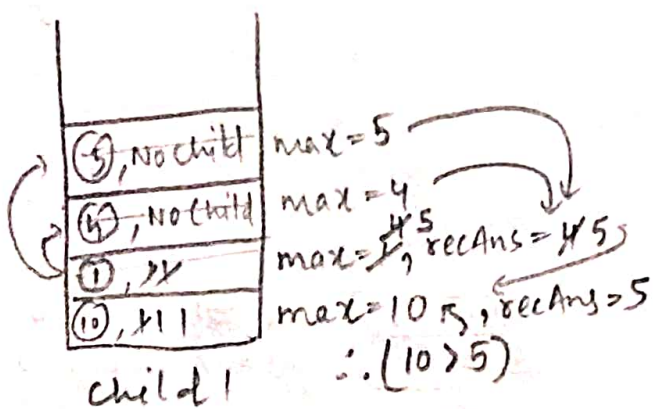 5, No Child max = 5
4, No Child max = 4
4 5
1, max = 1, recAns = 4 5
10, 11 max = 10, recAns = 5
∴ (10 > 5)
child 1